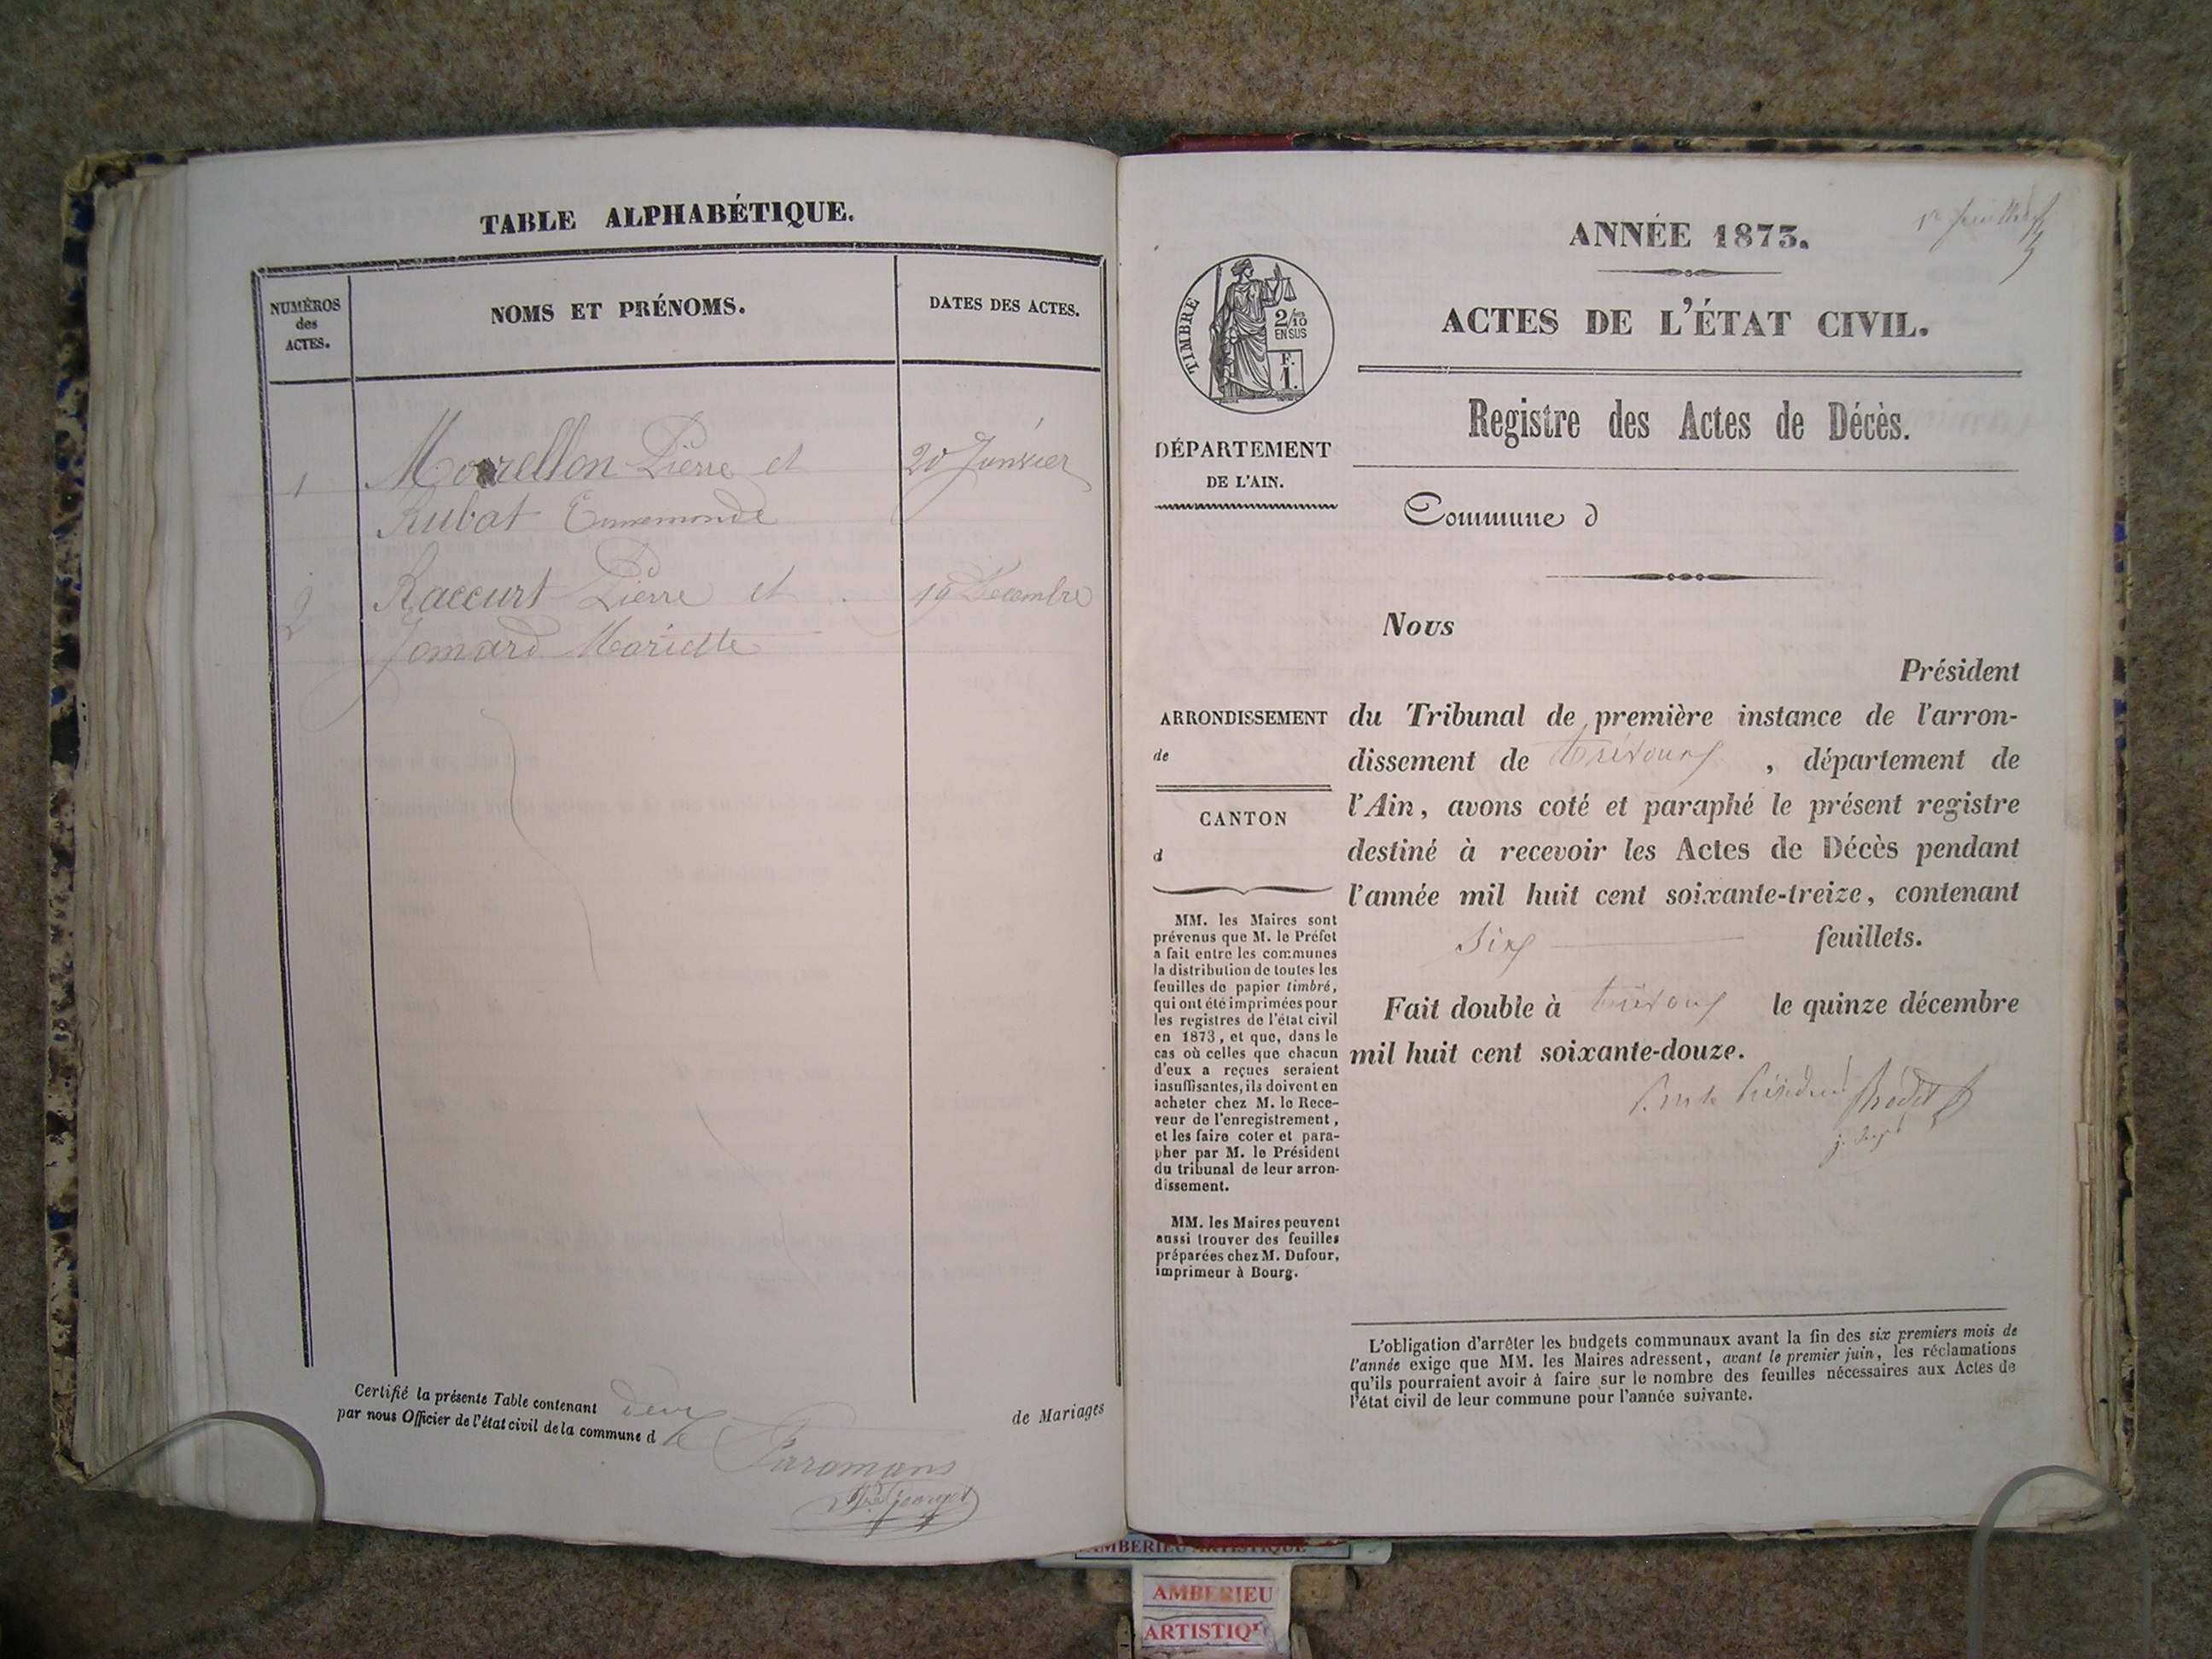 TABLE ALPHABÉTIQUE.
NUMÉROS
des
ACTES.
NOMS ET PRÉNOMS.
DATES DES ACTES.
1 Morellon Pierre et 20 Janvier
Rubat Ennemonde
2 Raccurt Pierre et 19 Décembre
Jomard Mariette
Certifié la présente Table contenant deux de Mariages
par nous Officier de l'état civil de la commune de
Faramans
1er feuillet
ANNÉE 1873.
ACTES DE L'ÉTAT CIVIL.
TIMBRE
2/10
EN SUS
F.
1.
Registre des Actes de Décès.
DÉPARTEMENT
DE L'AIN.
Commune d
Nous
Président
du Tribunal de première instance de l'arron-
dissement de trévoux , département de
l'Ain, avons coté et paraphé le présent registre
destiné à recevoir les Actes de Décès pendant
l'année mil huit cent soixante-treize, contenant
Six feuillets.
Fait double à trévoux le quinze décembre
mil huit cent soixante-douze.
Président
ARRONDISSEMENT
de
CANTON
d
MM. les Maires sont
prévenus que M. le Préfet
a fait entre les communes
la distribution de toutes les
feuilles de papier timbré,
qui ont été imprimées pour
les registres de l'état civil
en 1873, et que, dans le
cas où celles que chacun
d'eux a reçues seraient
insuffisantes, ils doivent en
acheter chez M. le Rece-
veur de l'enregistrement,
et les faire coter et para-
pher par M. le Président
du tribunal de leur arron-
dissement.
MM. les Maires peuvent
aussi trouver des feuilles
préparées chez M. Dufour,
imprimeur à Bourg.
L'obligation d'arrêter les budgets communaux avant la fin des six premiers mois de
l'année exige que MM. les Maires adressent, avant le premier juin, les réclamations
qu'ils pourraient avoir à faire sur le nombre des feuilles nécessaires aux Actes de
l'état civil de leur commune pour l'année suivante.
AMBERIEU ARTISTIQUE
AMBERIEU
ARTISTIQU